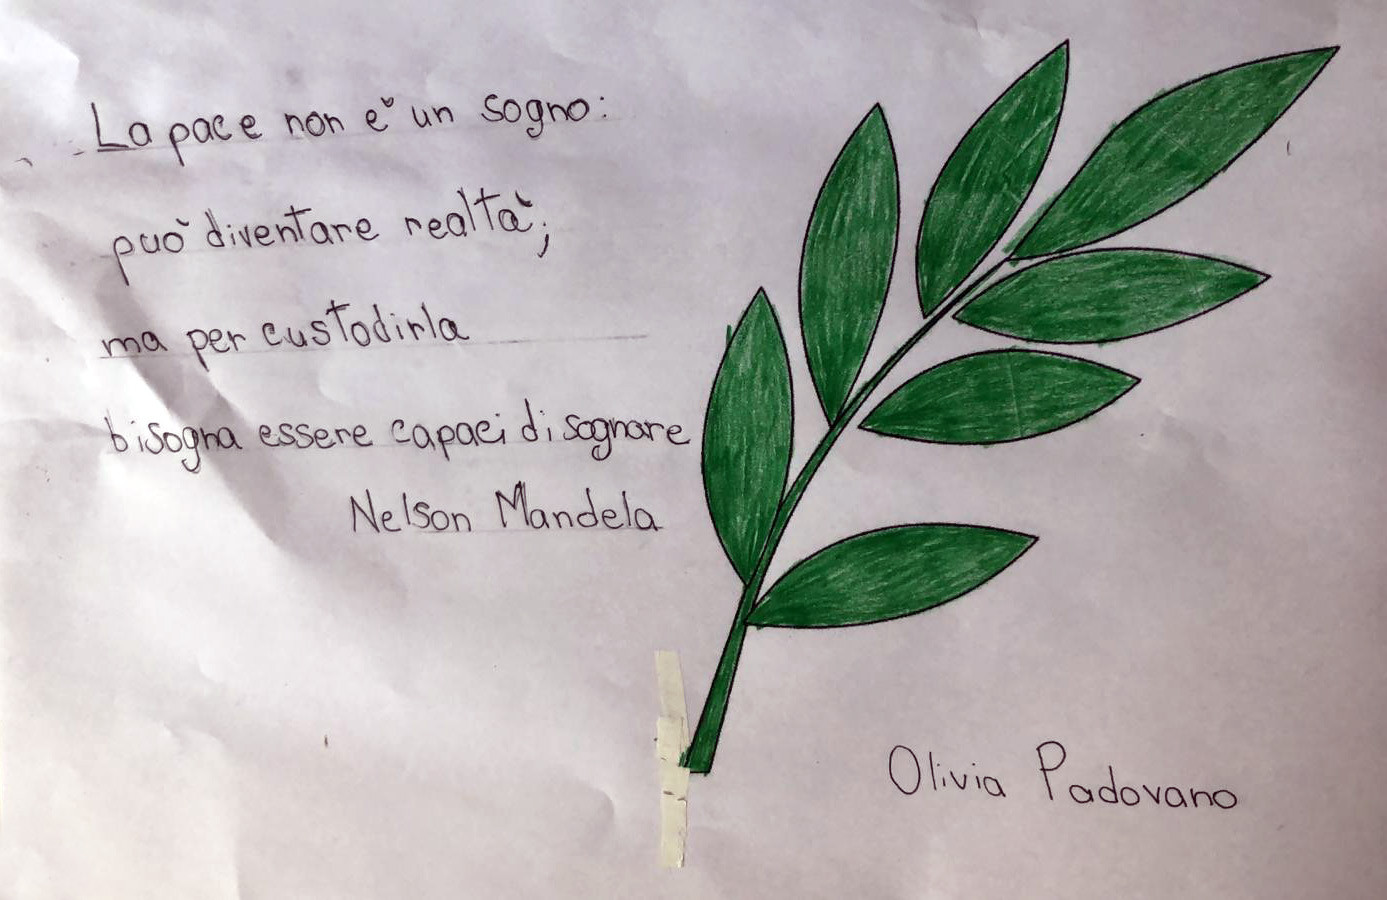 La pace non è un sogno:
può diventare realtà;
ma per custodirla
bisogna essere capaci di sognare
Nelson Mandela
Olivia Padovano